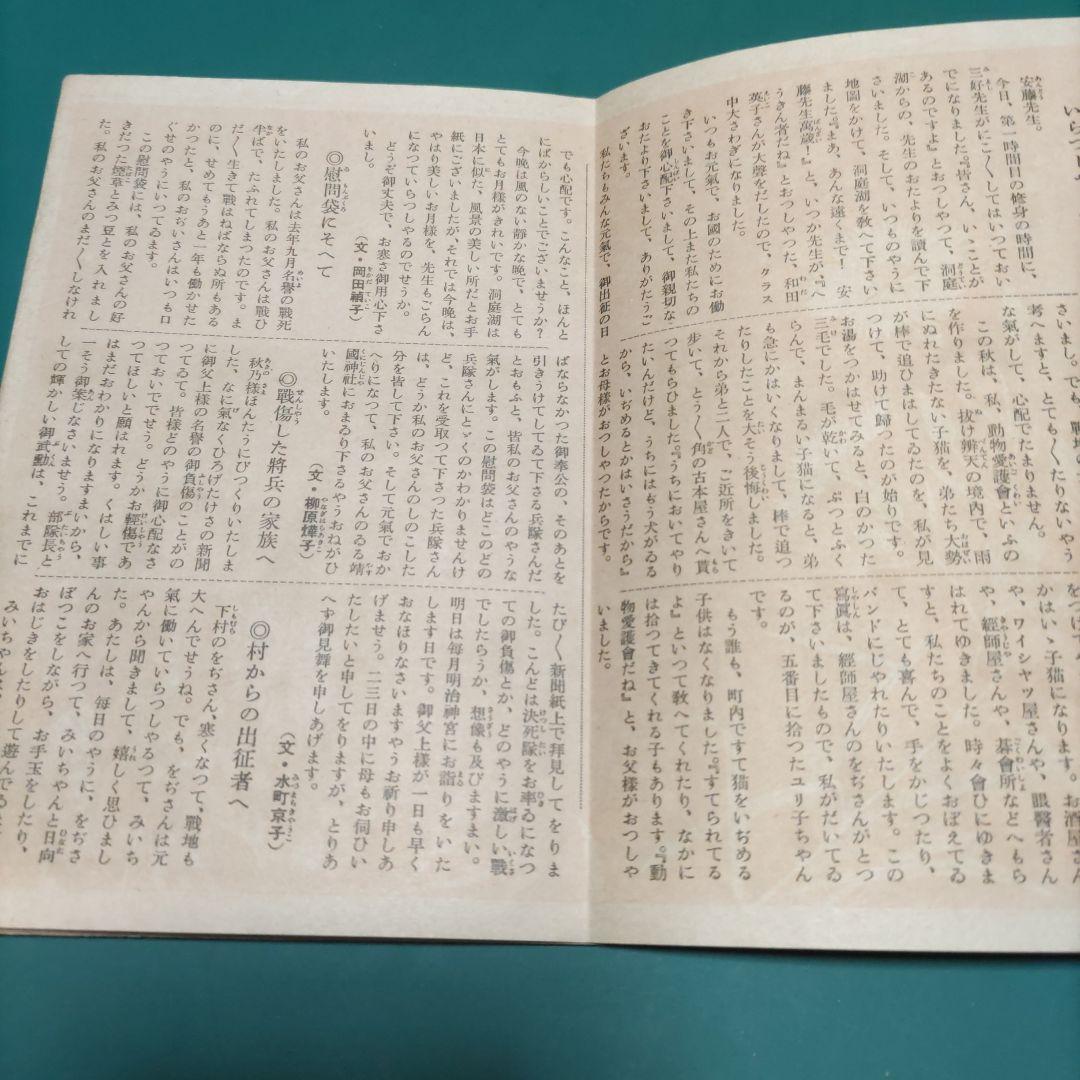 いらつしや
安藤先生。
今日、第一時間目の修身の時間に、
三好先生がにこ〱してはいつておい
でになりました。『皆さん、いゝことが
あるのですよ』とおつしやつて、洞庭
湖からの、先生のおたよりを讀んで下
さいました。そして、いつものやうに
地圖をかけて、洞庭湖を敎へて下さい
ました。『まあ、あんな遠くまで！　安
藤先生萬歳！』と、いつか先生が、『へ
うきん者だね』とおつしやつた、和田
英子さんが大聲をだしたので、クラス
中大さわぎになりました。
いつもお元氣で、お國のためにお働
き下さいまして、その上また私たちの
ことを御心配下さいまして、御親切な
おたより下さいまして、ありがたうご
ざいます。
私たちもみんな元氣で、御出征の日
さいまし。でも、戰
考へますと、とても〱たりないやう
な氣がして、心配でたまりません。
この秋は、私、動物愛護會といふの
を作りました。抜け辨天の境內で、雨
にぬれたきたない子猫を、弟たち大勢
が棒で追ひまはしてゐたのを、私が見
つけて、助けて歸つたのが始りです。
お湯をつかはせてみると、白のかつた
三毛でした。毛が乾いて、ぷつとふく
らんで、まんまるい子猫になると、弟
も急にかはいくなりまして、棒で追つ
たりしたことを大そう後悔しました。
それから弟と二人で、ご近所をきいて
歩いて、とう〱角の古本屋さんへ貰
つてもらひました。『うちにおいてやり
たいんだけど、うちにはぢう犬がゐる
から、いぢめるとかはいさうだから』
とお母様がおつしやたからです。
をつけて
かはいゝ子猫になります。お酒屋さん
や、ワイシャツ屋さんや、眼醫者さん
や、經師屋さんや、碁會所などへもら
はれてゆきました。時々會ひにゆきま
すと、私たちのことをよくおぼえてゐ
て、とても喜んで、手をかじつたり、
バンドにじやれたりいたします。この
寫眞は、經師屋さんのをぢさんがとつ
て下さいましたもので、私がだいてゐ
るのが、五番目に拾つたユリ子ちやん
です。
もう誰も、町內ですて猫をいぢめる
子供はなくなりました。『すてられてる
よ』といつて敎へてくれたり、なかに
は拾つてきてくれる子もあります。『動
物愛護會だね』と、お父様がおつしや
いました。
でも心配です。こんなこと、ほんと
にばからしいことでございませうか？
今晩は風のない靜かな晩で、とても
とてもお月様がきれいです。洞庭湖は
日本に似た、風景の美しい所だとお手
紙にございましたが、それでは今晩は、
やはり美しいお月様を、先生もごらん
になつていらつしやるのでせうか。
どうぞ御丈夫で、お寒さ御用心下さ
いまし。
（文・岡田禎子）
◎慰問袋にそへて
私のお父さんは去年九月名譽の戰死
をいたしました。私のお父さんは戰ひ
半ばで、たふれてしまつたのです。ま
だ〱生きて戰はねばならぬ所もある
のに、せめてもうあと一年も働かせた
かつたと、私のおぢいさんはいつも口
ぐせのやうにいつてゐます。
この慰問袋には、私のお父さんの好
きだつた煙草とみつ豆とを入れまし
た。私のお父さんのまだ〱しなけれ
ばならなかつた御奉公の、そのあとを
引きうけてしてゐて下さる兵隊さんだ
とおもふと、皆私のお父さんのやうな
氣がします。この慰問袋はどこのどの
兵隊さんにとゞくのかわかりませんけ
ど、これを受取つて下さつた兵隊さん
は、どうか私のお父さんのしのこした
分を皆して下さい。そして元氣でおか
へりになつて、私のお父さんのゐる靖
國神社におまゐり下さるやうおねがひ
いたします。
（文・柳原燁子）
◎戰傷した將兵の家族へ
秋乃様ほんたうにびつくりいたしま
した、なに氣なくひろげたけさの新聞
に御父上様の名譽の御負傷のことがの
つてゐて。皆様どのやうに御心配なさ
つておいででせう。どうかお輕傷であ
つてほしいと願はれます。くはしい事
はまだおわかりになりますまいから、
一そう御案じなさいませう。部隊長と
しての輝かしい御武勳は、これまでに
たび〱新聞紙上で拜見してをりま
した。こんどは決死隊をお率ゐになつ
ての御負傷とか、どのやうに激しい戰
でしたらうか、想像も及びますまい。
明日は每月明治神宮にお詣りをいた
します日です。御父上様が一日も早く
おなほりなさいますやうお祈り申しあ
げませう。二三日の中に母もお伺ひい
たしたいと申してをりますが、とりあ
へず御見舞を申しあげます。
（文・水町京子）
◎村からの出征者へ
下村のをぢさん、寒くなつて、戰地も
大へんでせうね。でも、をぢさんは元
氣に働いていらつしやるつて、みいち
やんから聞きまして、嬉しく思ひまし
た。あたしは、每日のやうに、をぢさ
んのお家へ行つて、みいちやんと日向
ぼつこをしながら、お手玉をしたり、
おはじきをしたりして遊んでゐます
みいちやん